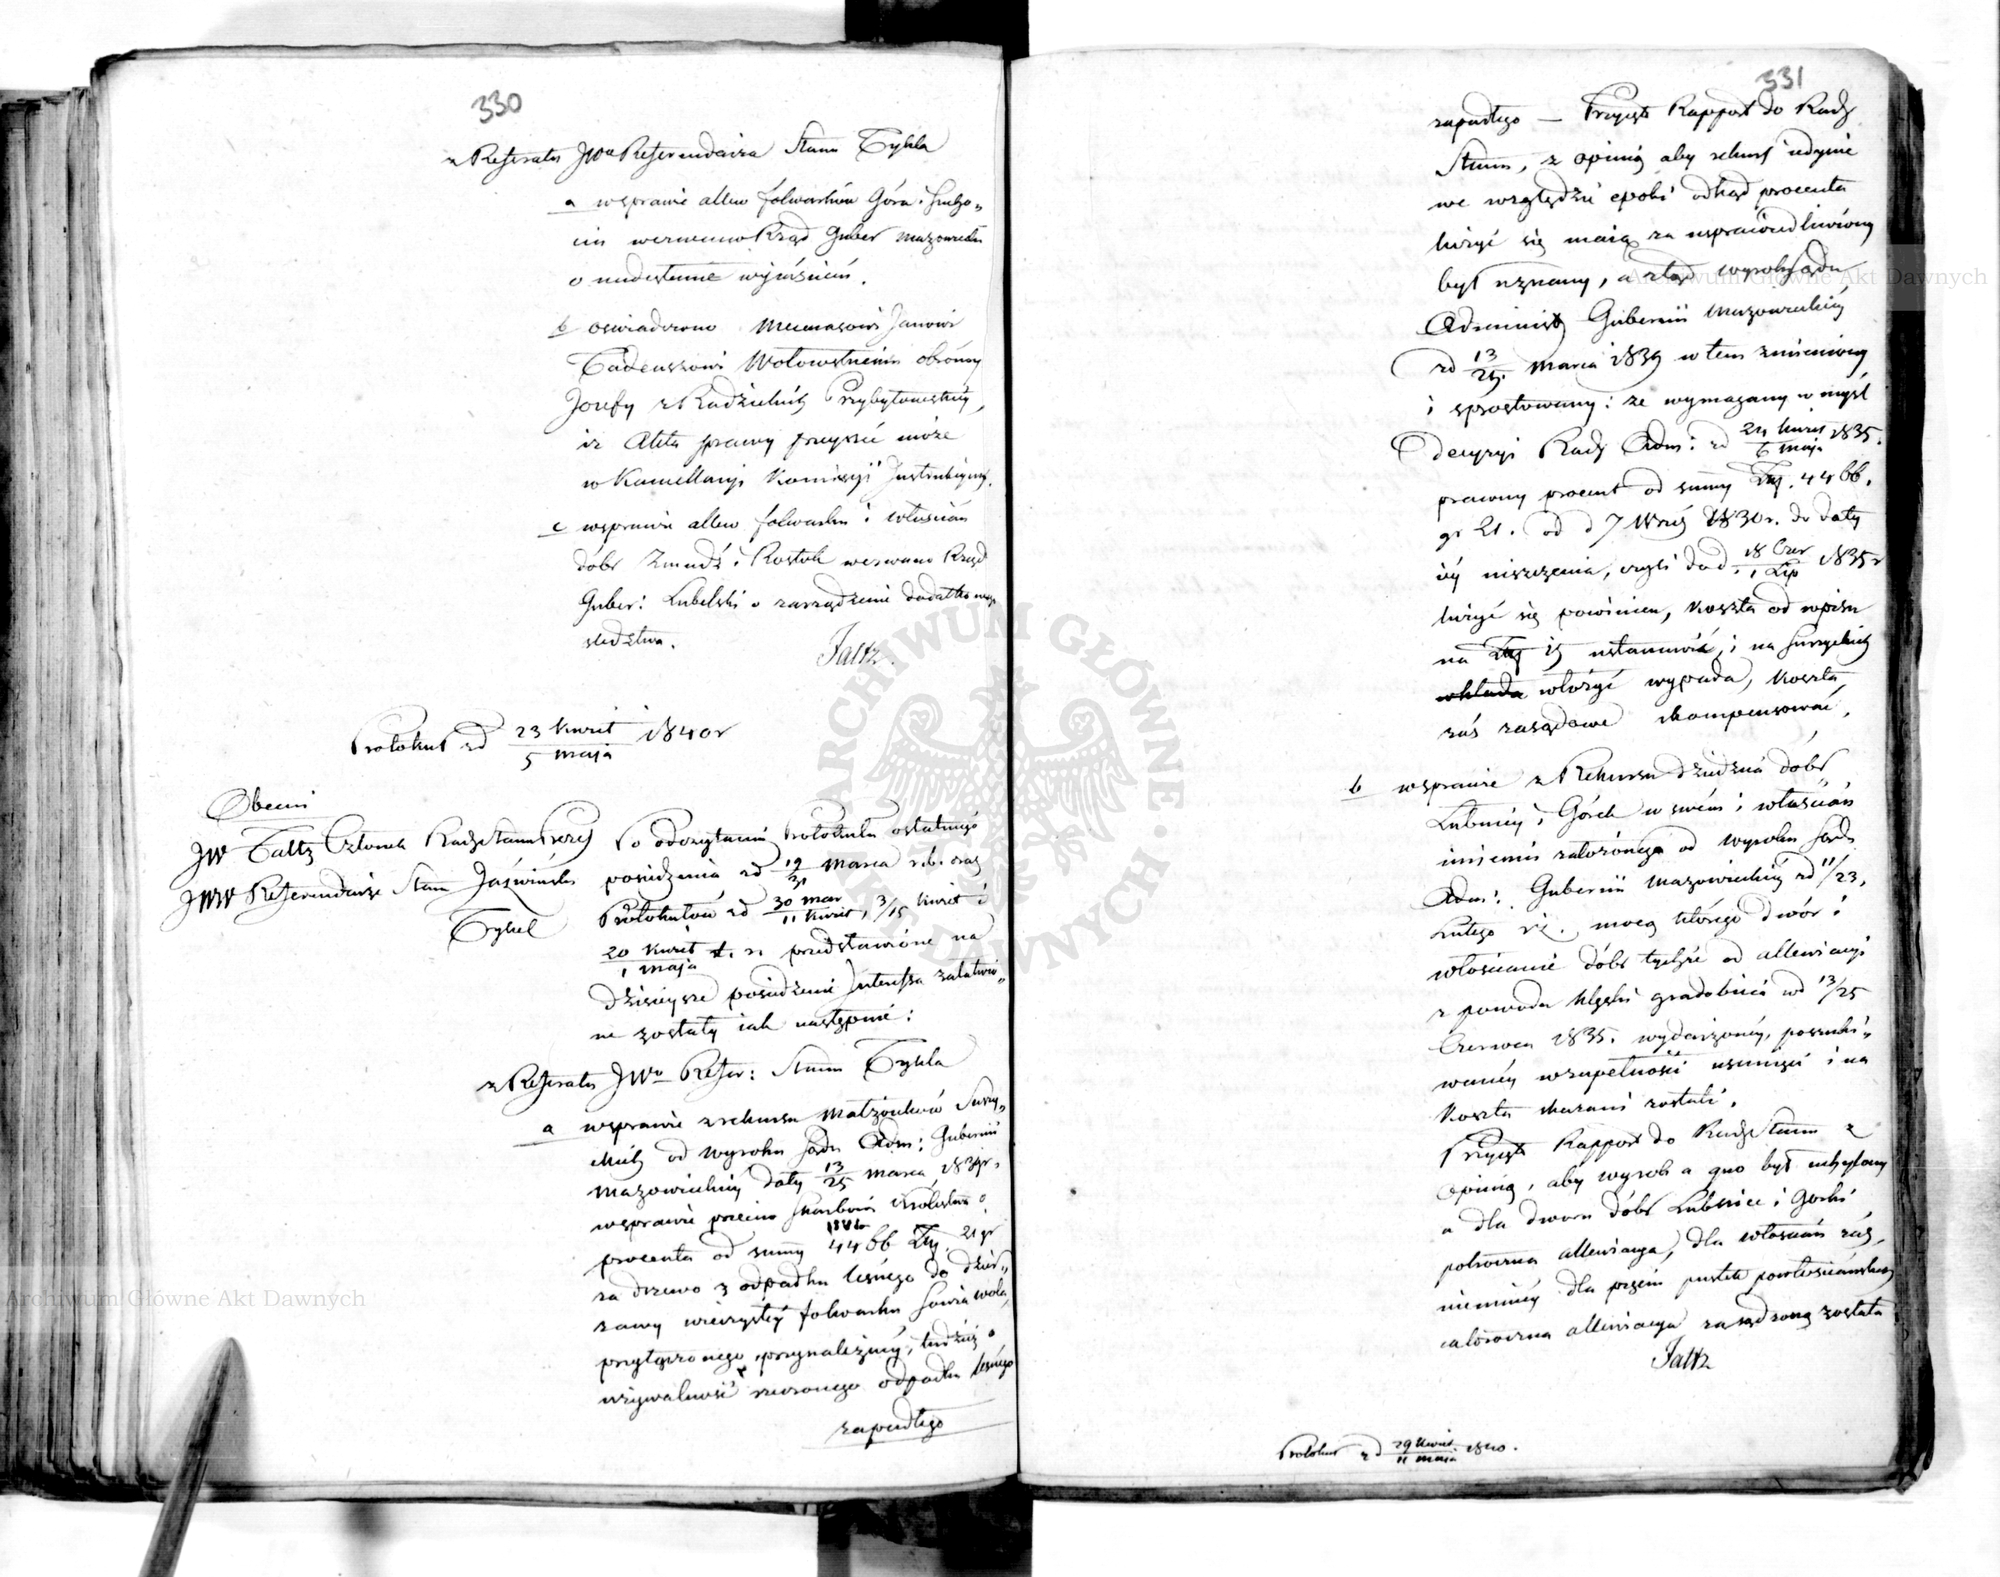 330
z Referatu JWo Referendarza Stanu Tykla
a w sprawie allew folwarków Góra i
wezwano Rząd Guber Mazowiecki
o nadesłanie wyjaśnień.
b oświadczono Mecenasowi Janowi
Tadeuszowi Wołowskiemu obrońcy
Józefy z Radzickich Przybyłowskiéy,
iż Akta sprawy przejrzeć może
w Kancellaryi Kommissyi Instrukcyjnej.
c w sprawie allew folwarku i włościan
dóbr Zmudź i Rostok wezwano Rząd
Guber: Lubelski o zarządzenie dodatkowego
śledztwa.
Faltz.
Protokuł zd 23 Kwiet / 5 maja 1840 r
Obecni
JW Faltz Członek Rady Stanu Prezes
JWW Referendarze Stanu Jaźwiński
Tykel
Po odczytaniu Protokułu ostatniego
posiedzenia zd 19/31 marca r. b. oraz
Protokułów zd 30 mar / 11 Kwiet, 3/15 Kwiet i
20 Kwiet / 1 maja t. r. przedstawione na
dzisieysze posiedzenie Interessa załatwio„
ne zostały iak następnie:
z Referatu JWo Refer: Stanu Tykla
a w sprawie z rekursu Małżonków
od wyroku Sądu Adm: Gubernii
Mazowieckiey daty 13/25 marca 1839 r.
w sprawie przeciw Skarbowi Królestwa o
procenta od summy 4466 Złp. 21 gr
za drzewo z odpadku leśnego do dzier„
żawy wieczystéy folwarku Sowia wola
przyłączonego, przynależnéy, tudzież o
używalność rzeczonego odpadku leśnego
zapadłego
331
zapadłego — Przyięto Rapport do Rady
Stanu, z opinią aby rekurs iedynie
we względzie epoki odkąd procenta
liczyć się maią za usprawiedliwiony
był uznany, a ztąd wyrok Sądu
Administ Gubernii Mazowieckiéy
zd 13/25 marca 1839 w tem zmieniony
i sprostowany: że wymagany w myśl
decyzyi Rady Adm: zd 24 Kwiet / 6 maja 1835.
prawny procent od summy Złp. 4466.
gr 21. od d 7 Wrześ 1830 r. do daty
iéy uiszczenia, czyli do d. 18 Czer / 1 Lip 1835 r
liczyć się powinien, koszta od wpisu
na Złp 15 ustanowić, i na
włożyć wypada, koszta
zaś zasądowe skompensować,
b w sprawie z Rekursu dziedzica dóbr
Lubnicy i Górek w swém i włościan
imieniu założonego od wyroku Sądu
Adm: Gubernii Mazowieckiéy zd 11/23,
Lutego r. z. mocą którego dwór i
włościanie dóbr tychże od allewiacyi
z powodu klęski gradobicia wd 13/25
Czerwca 1835. wydarzonéy, poszuki„
wanéy w zupełności usunięci i na
koszta skazani zostali.
Przyięto Rapport do Rady Stanu z
Opinią, aby wyrok a quo był uchylony
a dla dworu dóbr Lubnice i Gorki
półroczna allewiacya, dla włościan zaś,
niemniéy dla pustek powłościańskich
całoroczna allewiacya zasądzoną została
Faltz
Protokuł zd 29 Kwiet / 11 maja 1840.
Archiwum Główne Akt Dawnych
Archiwum Główne Akt Dawnych
ARCHIWUM GŁÓWNE AKT DAWNYCH